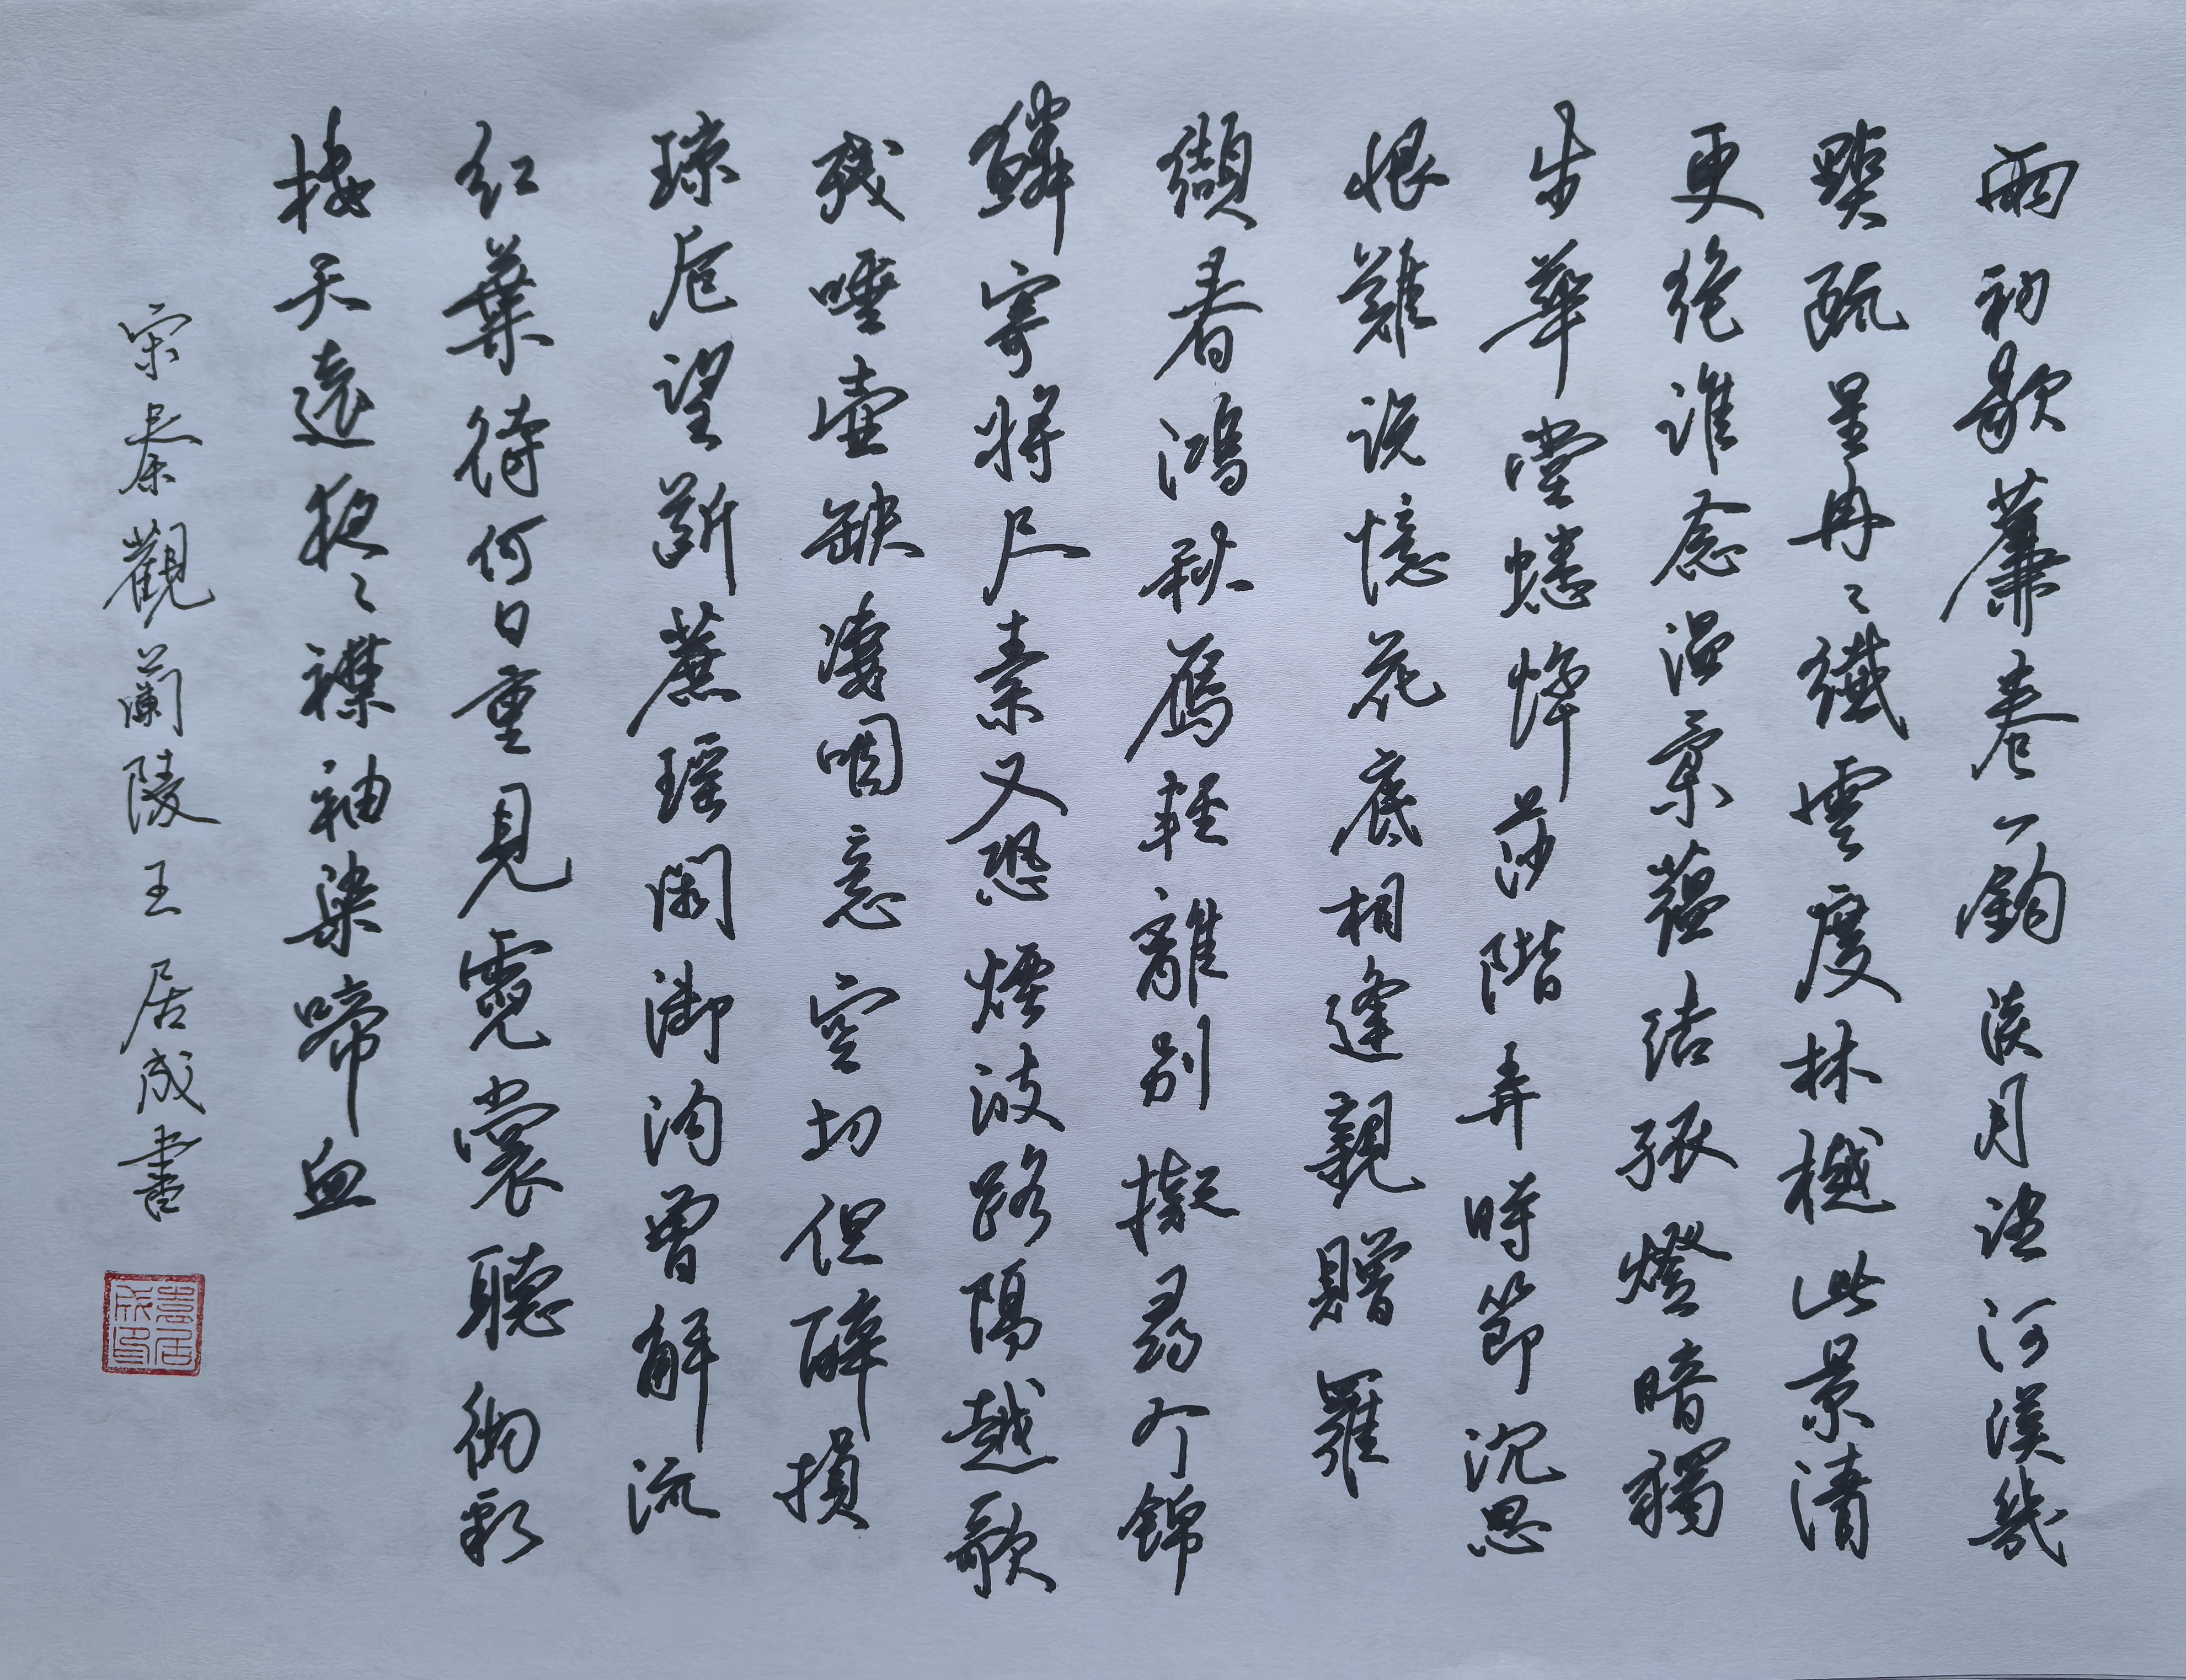 雨初歇簾卷一鈎淡月望河漢幾
點疏星冉〻纖雲度林樾此景清
更絕誰念溫柔蘊結孤燈暗獨
步華堂蟋蟀莎階弄時節沉思
恨難說憶花底相逢親贈羅
纈春鴻秋雁輕離別擬尋个錦
鱗寄將尺素又恐煙波路隔越歌
殘唾壺缺凄咽意空切但醉損
琼卮望斷蔗瑶闕御沟曾解流
红葉待何日重見霓裳聽彻彩
樓天遠夜〻襟袖染啼血
宋秦觀蘭陵王居成書